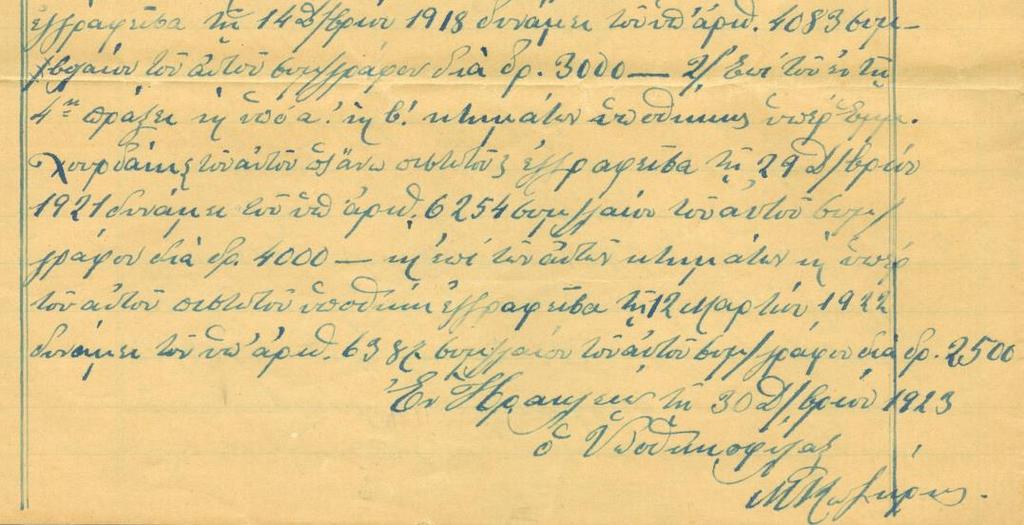 ἐγγραφεῖσα τῇ 14 Δ/βρίου 1918 δυνάμει τοῦ ὑπ' ἀριθ. 4083 συμ-
βολαίου τοῦ αὐτοῦ συμ/γράφου διὰ δρ. 3000 — 2/ Ἐπὶ τοῦ ἐν τῇ
4ῃ πράξει κ ὑπὸ α! κ β! κτημάτων ὑποθήκης ὑπὲρ Ἐμμ.
Χουρδάκης τοῦ αὐτοῦ ὡς ἄνω πιστωτοῦ ἐγγραφεῖσα τῇ 29 Δ/βρίου
1921 δυνάμει τοῦ ὑπ' ἀριθ. 6254 συμ/λαίου τοῦ αὐτοῦ συμ/
γράφου διὰ δρ. 4000 — κ ἐπὶ τῶν αὐτῶν κτημάτων κ ὑπὲρ
τοῦ αὐτοῦ πιστωτοῦ ὑποθήκη ἐγγραφεῖσα τῇ 12 Μαρτίου 1922
δυνάμει τοῦ ὑπ' ἀριθ. συμ/λαίου τοῦ αὐτοῦ συμ/γράφου διὰ δρ. 2500
Ἐν Ἡρακλείῳ τῇ 30 Δ/βρίου 1923
ὁ Ὑποθηκοφύλαξ